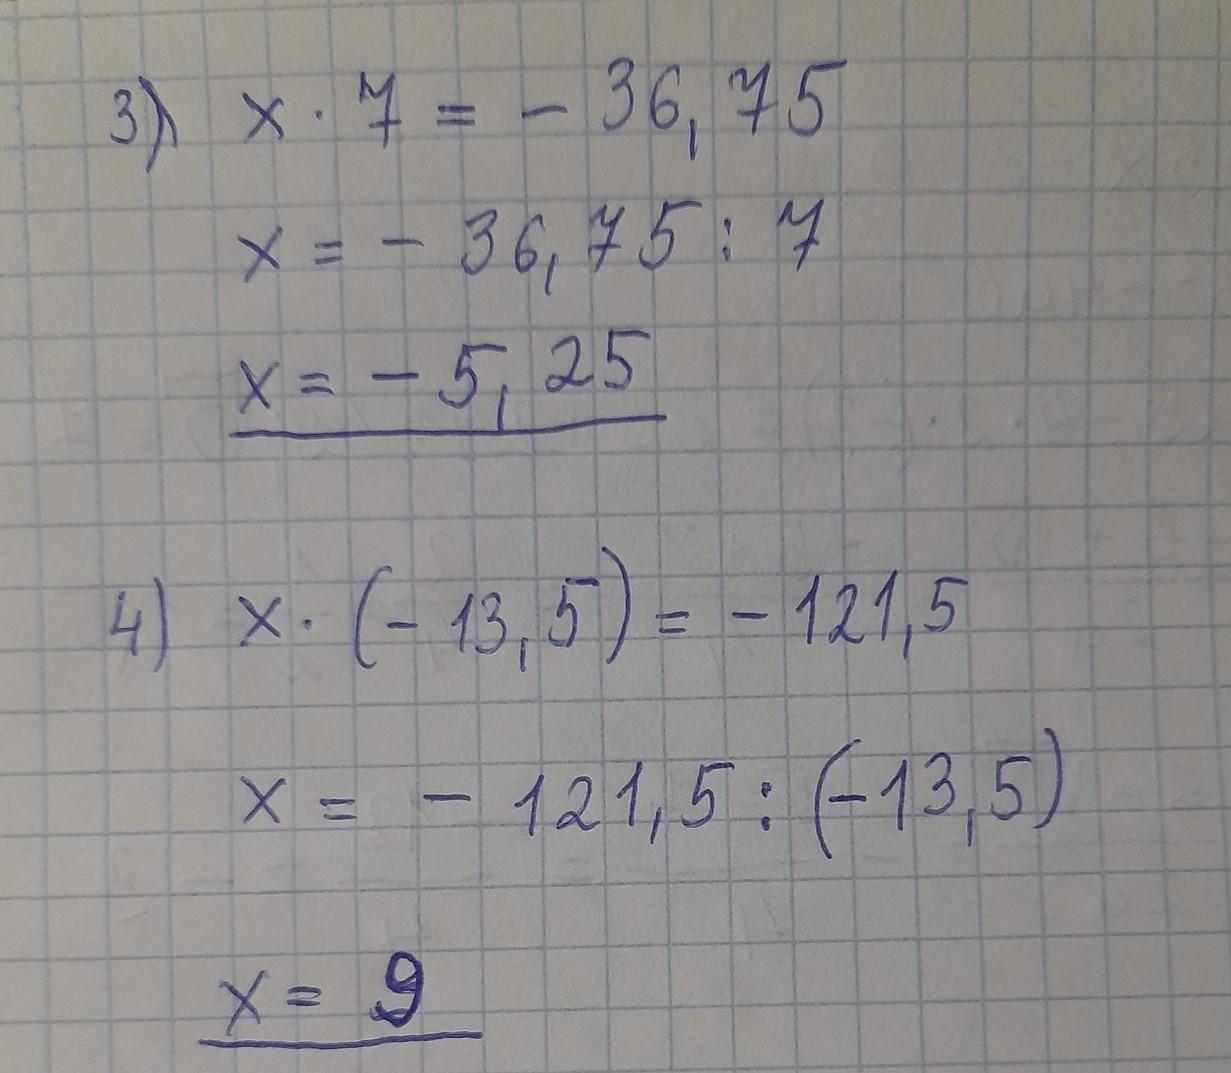 3) x · 7 = - 36,75
x = - 36,75 : 7
x = - 5,25
4) x · (- 13,5) = - 121,5
x = - 121,5 : (-13,5)
x = 9